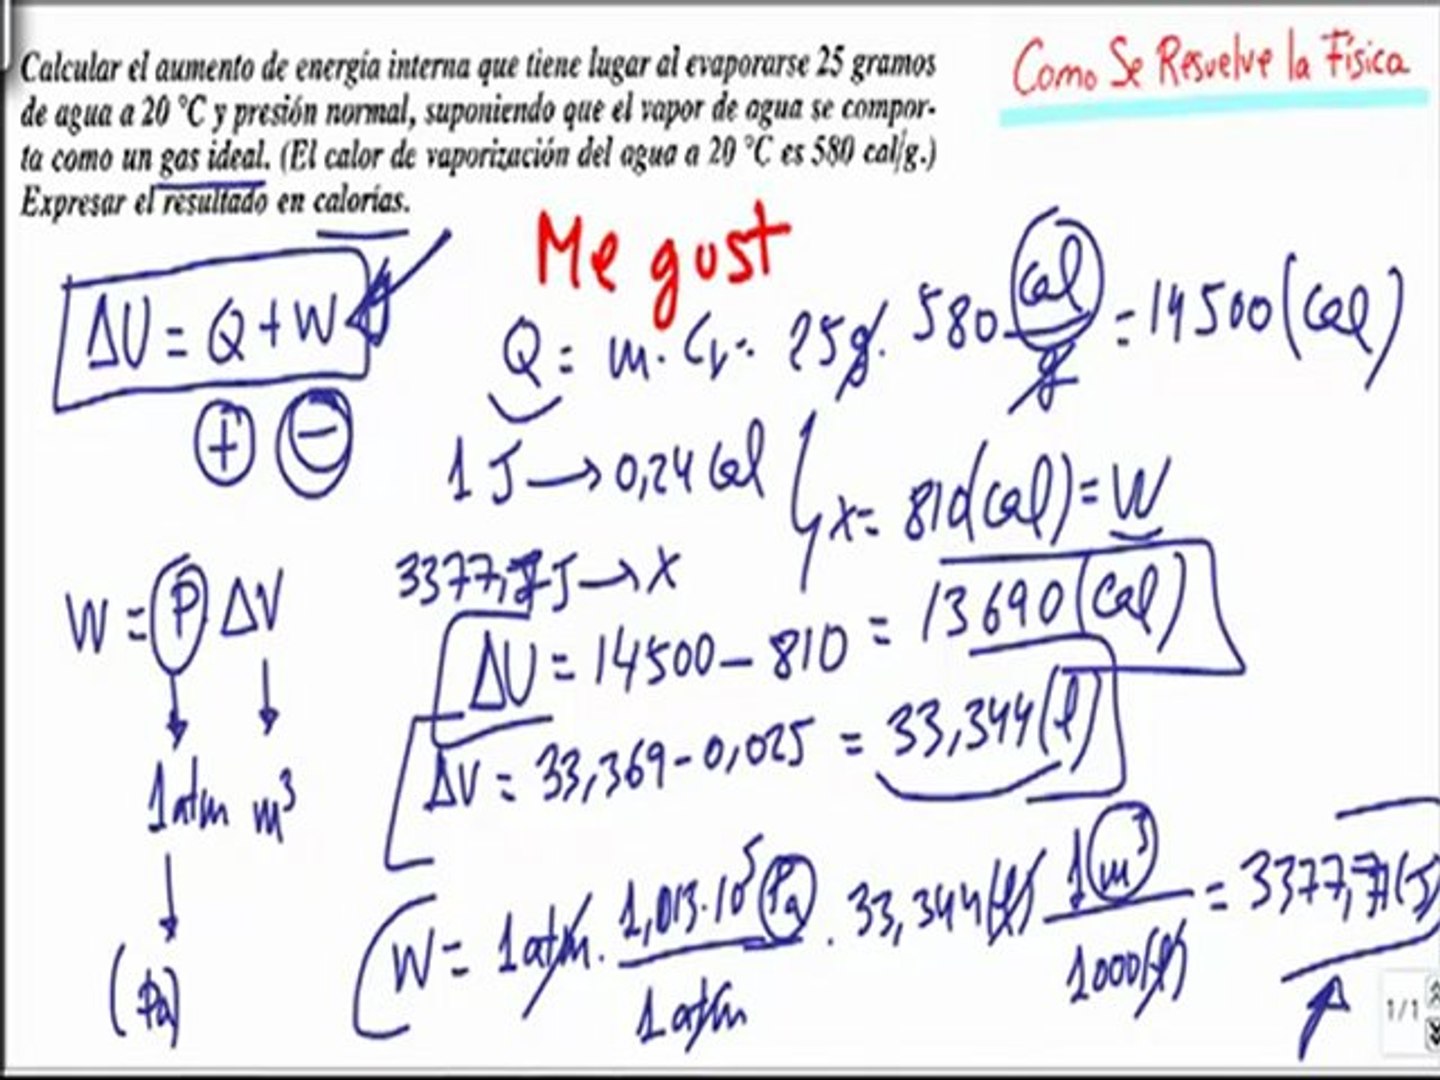 Calcular el aumento de energía interna que tiene lugar al evaporarse 25 gramos
de agua a 20 °C y presión normal, suponiendo que el vapor de agua se compor-
ta como un gas ideal. (El calor de vaporización del agua a 20 °C es 580 cal/g.)
Expresar el resultado en calorías.
Como Se Resuelve la Física
Me gust
ΔU = Q + W
+ −
Q = m · Cv = 25g · 580 cal/g = 14500 (cal)
1 J → 0,24 cal
3377,7 J → X
X = 810 (cal) = W
W = P ΔV
1 atm m³
(Pa)
ΔU = 14500 − 810 = 13690 (cal)
ΔV = 33,369 − 0,025 = 33,344 (l)
W = 1 atm · 1,013·10⁵ Pa / 1 atm · 33,344 (l) 1 m³ / 1000 (l) = 3377,7 (J)
1/1